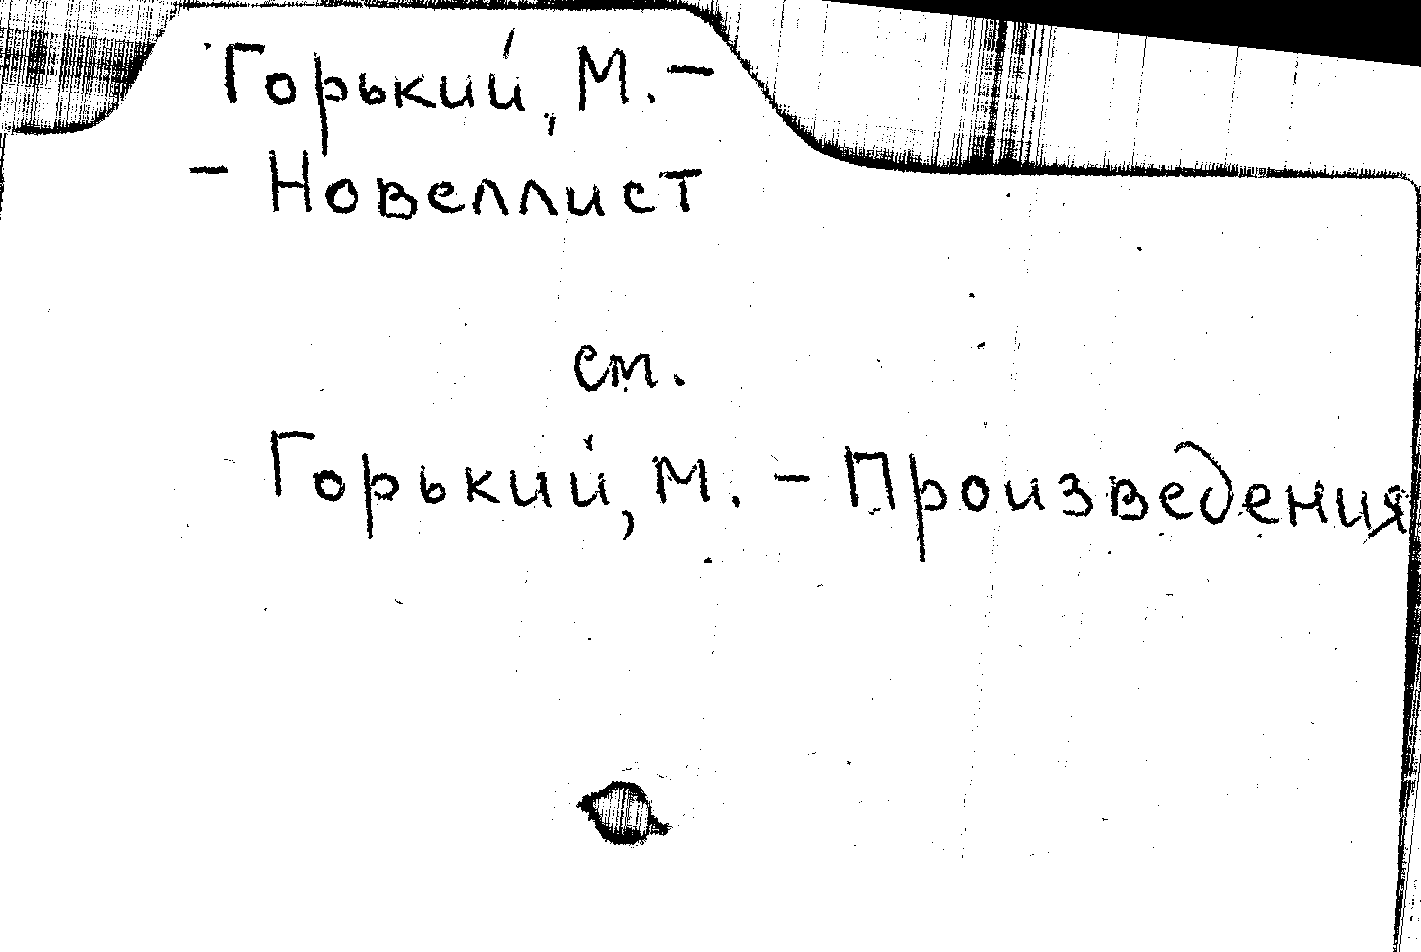 Горький, М. -
- Новеллист
см.
Горький, М. - Произведения